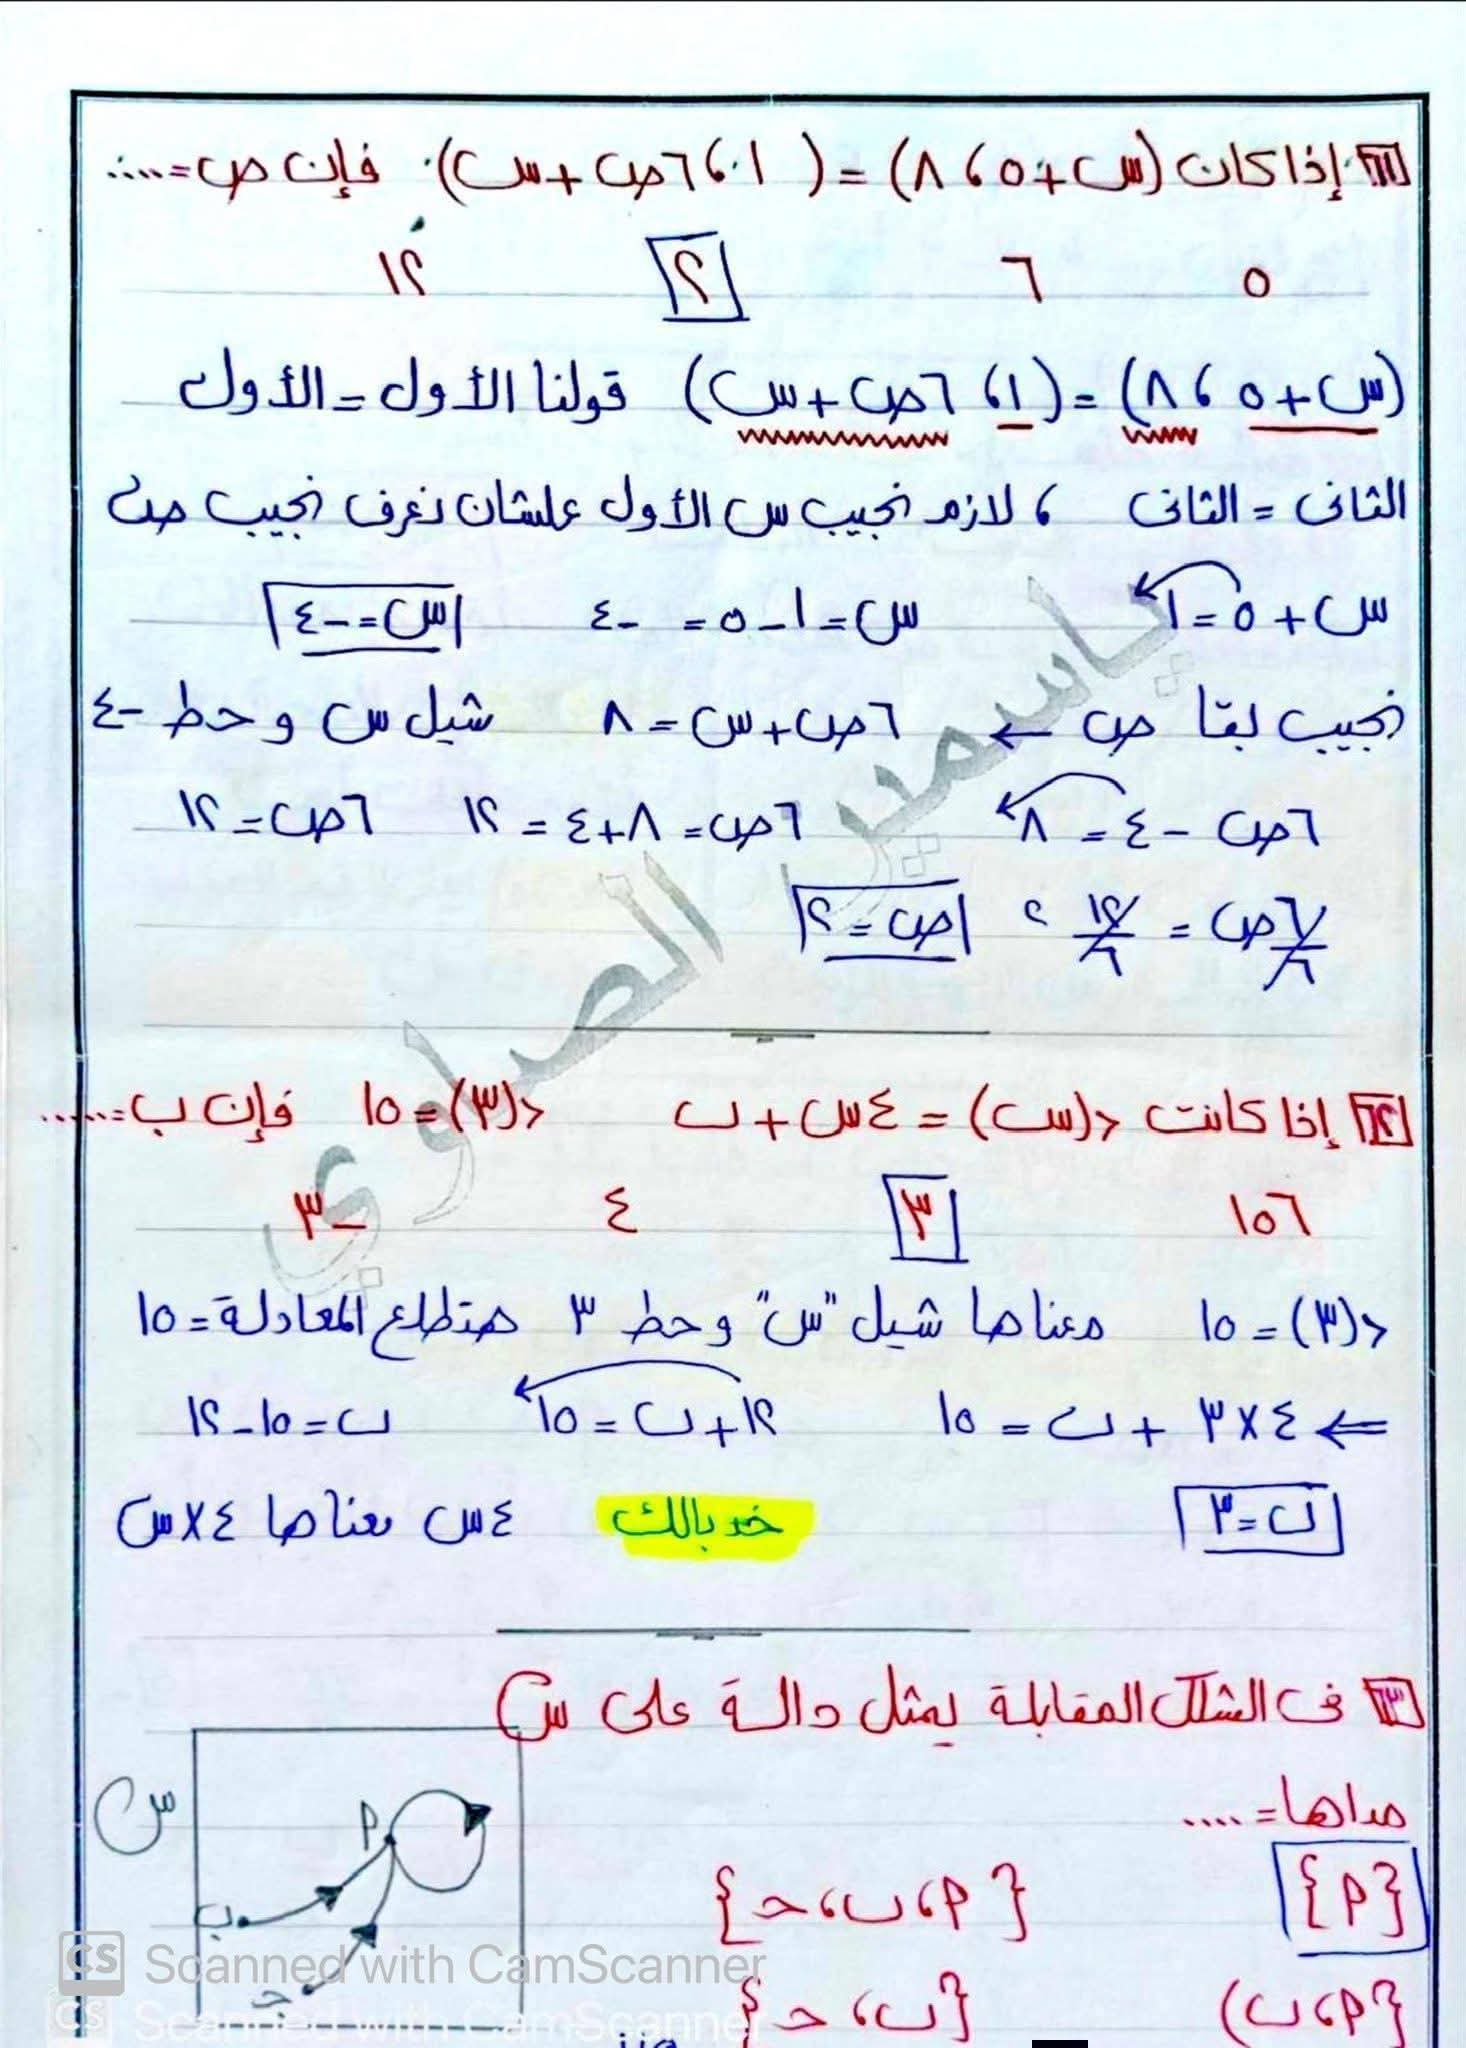 ١١ إذا كان (س + ٥ ، ٨) = (١ ، ٦ص + س) فإن ص = ....
٥ ٦ ٢ ١٢
(س + ٥ ، ٨) = (١ ، ٦ص + س) قولنا الأول = الأول
الثانى = الثانى ، لازم نجيب س الأول علشان نعرف نجيب ص
س + ٥ = ١ س = ١ - ٥ = -٤ س = -٤
نجيب بقا ص ← ٦ص + س = ٨ شيل س وحط -٤
٦ص - ٤ = ٨ ٦ص = ٨ + ٤ = ١٢ ٦ص = ١٢
٦ص/٦ = ١٢/٦ ٢ ص = ٢
ياسمين الصاوي
١٢ إذا كانت د(س) = ٤س + ب د(٣) = ١٥ فإن ب = ......
١٥٦ ٣ ٤ -٣
د(٣) = ١٥ معناها شيل "س" وحط ٣ هتطلع المعادلة = ١٥
⇐ ٤ × ٣ + ب = ١٥ ١٢ + ب = ١٥ ب = ١٥ - ١٢
ب = ٣ خد بالك ٤س معناها ٤ × س
١٣ فى الشكل المقابلة يمثل دالة على س
مداها = ....
{أ} {أ ، ب ، حـ}
{أ ، ب) {ب ، حـ}
س
أ
ب
جـ
CS Scanned with CamScanner
CS Scanned with CamScanner